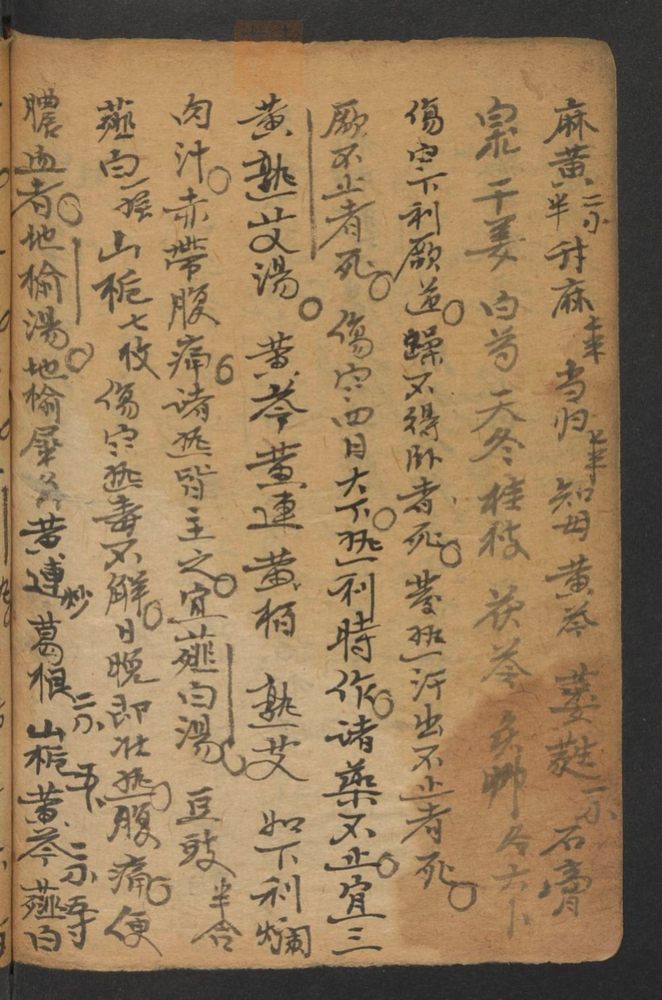 麻黄二分半 升麻七半 当归七半 知母 黄芩 葳蕤一分 石膏
宗 干姜 白芍 天冬 桂枝 茯苓 炙 各六卜
傷宗下利厥逆。躁不得卧者死。發热汗出不止者死。
厥不止者死。傷宗四日大下。热利時作。諸藥不止。宜三
黄熟艾湯。黄芩 黄連 黄柏 熟艾 如下利爛
肉汁。赤带腹痛。諸热皆主之。宜薤白湯。豆豉半合
薤白一握 山栀七枚 傷宗热毒不解。日晚即壮热。腹痛。便
膿血者。地榆湯。地榆 犀角 黄連炒 葛根二分 山栀 黄芩二分 薤白